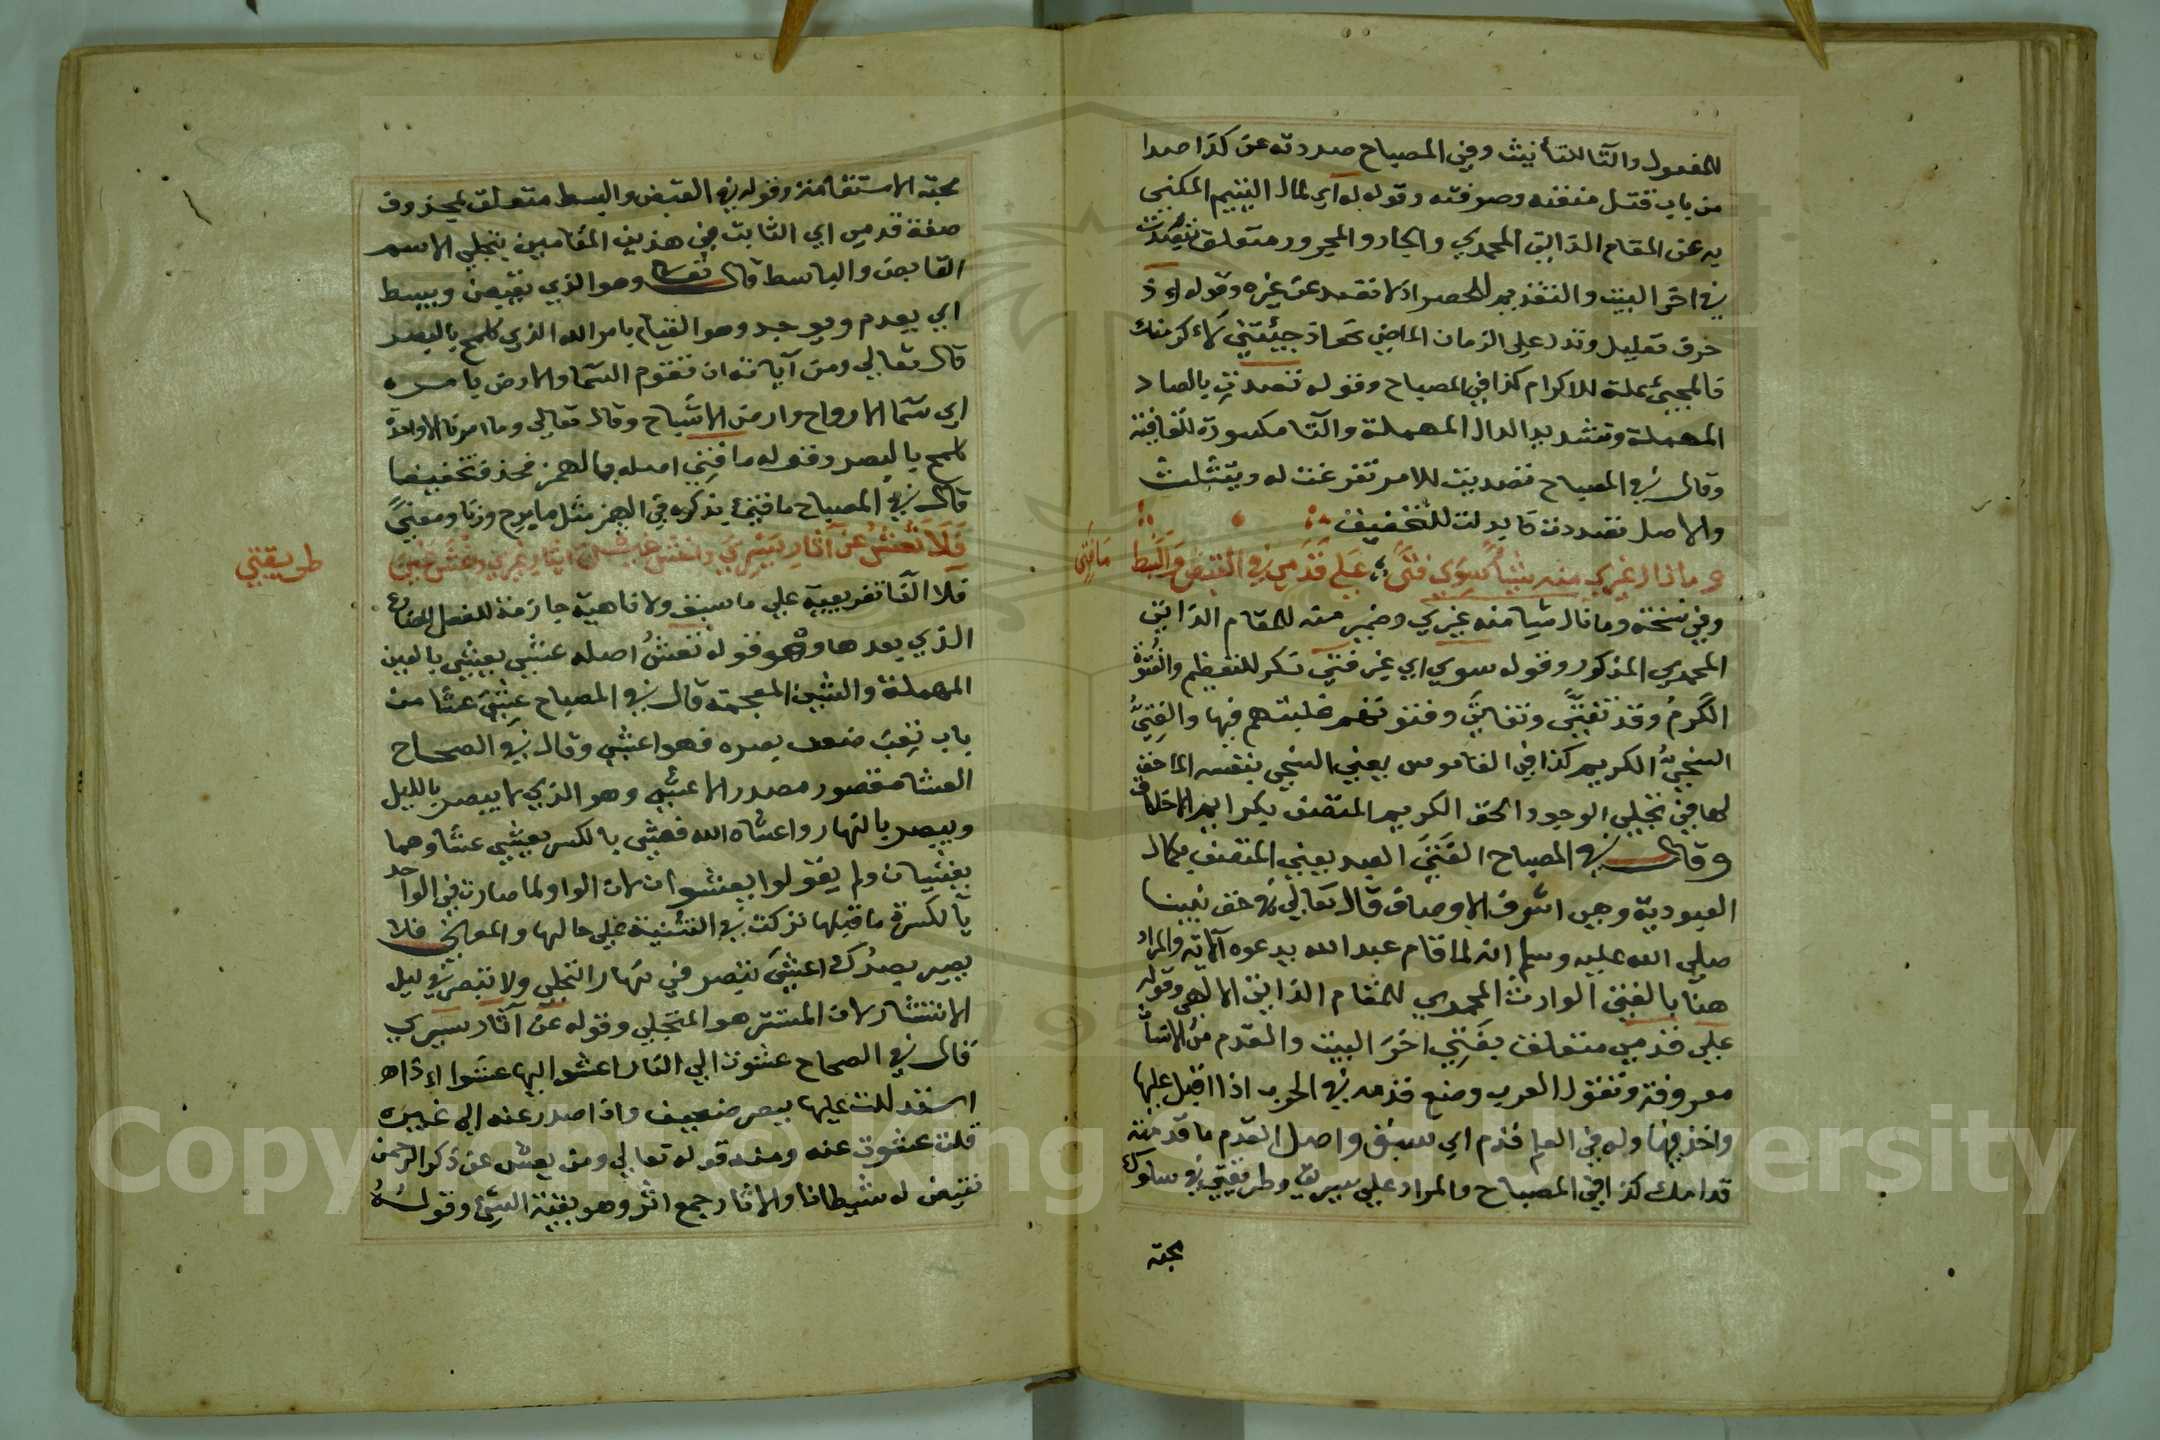 للمفعول والتا للتأنيث وفي المصباح صددته عن كذا صدا
من باب قتل منعته وصرفته وقوله له اي لمال اليتيم المكنى
به عن المقام الذاتي المحمدي والجار والمجرور متعلق بتصدت
في اخر البيت والتقديم للحصر اذ لا تقصد عن غيره وقوله اذ
حرف تعليل وتدل على الزمان الماضي نحو اذ جئتني لاكرمنك
فالمجيئ علة للاكرام كذا في المصباح وقوله تصدت بالصاد
المهملة وتشديد الدال المهملة والتا مكسورة للقافية
وقال في المصباح تصديت للامر تفرغت له وتبتلت
والاصل تصددت فابدلت للتخفيف
وما نال غيري منه شيئا سوى فتى على قدمي في القبض والبسط
ما فتي
وفي نسخة وما نال شيا منه غيري وضمير منه للمقام الذاتي
المحمدي المذكور وقوله سوى اي غير فتى نكر للتعظيم والفتوة
الكرم وقد تفتى وتفاتى وفتوتهم غلبتهم فيها والفتى
السخي الكريم كذا في القاموس يعني السخي بنفسه الماحق
لها في تجلي الوجود الحق الكريم المتصف بكرايم الاخلاق
وقال في المصباح الفتى العبد يعني المتصف بكمال
العبودية وهي اشرف الاوصاف قال تعالى في حق نبينا
صلى الله عليه وسلم انه لما قام عبد الله يدعوه الآية والمراد
هنا بالفتى الوارث المحمدي للمقام الذاتي الالهي وقوله
على قدمي متعلق بفتي اخر البيت والقدم من الانسان
معروفة وتقول العرب وضع قدمه في الحرب اذا اقبل عليها
واخذ فيها وله في العلم قدم اي سبق واصل القدم ما قدمته
قدامك كذا في المصباح والمراد على سيرتي وطريقتي في سلوك
محجة
محجة الاستقامة وقوله في القبض والبسط متعلق بمحذوف
صفة قدمي اي الثابت في هذين المقامين بتجلي الاسم
القابض والباسط قال تعالى وهو الذي يقبض ويبسط
اي يعدم ويوجد وهو القيام بامر الله الذي كلمح بالبصر
قال تعالى ومن آياته ان تقوم السما والارض بامره
اي سما الارواح وارض الاشباح وقال تعالى وما امرنا الا واحدة
كلمح بالبصر وقوله ما فتي اصله بالهمز فحذف تخفيفا
قال في المصباح ما فتئ يذكره في الهمز مثل ما برح وزنا ومعنى
فلا تعش عن آثار سيري واخش غين ايثار غيري واغش عين
طريقتي
فلا الفا تفريعية على ما سبق ولا ناهية جازمة للفعل المضارع
الذي بعدها وهو قوله تعش اصله عشي يعشي بالعين
المهملة والشين المعجمة قال في المصباح عشي عشا من
باب تعب ضعف بصره فهو اعشى وقال في الصحاح
العشا مقصور مصدر الاعشى وهو الذي لا يبصر بالليل
ويبصر بالنهار واعشاه الله فعشي بالكسر يعشى عشا وهما
يعشيان ولم يقولوا يعشوان لان الواو لما صارت في الواحد
يا لكسرة ما قبلها تركت في التثنية على حالها والمعنى فلا
يصير بصرك اعشى تبصر في نهار التجلي ولا تبصر في ليل
الاستتار لان المستتر هو المتجلي وقوله عن آثار سيري
قال في الصحاح عشوت الى النار اعشو اليها عشوا اذا
استدللت عليها ببصر ضعيف واذا صدر عنه الى غيره
قلت عشوت عنه ومنه قوله تعالى ومن يعش عن ذكر الرحمن
نقيض له شيطانا والاثار جمع اثر وهو بقية الشيئ وقوله